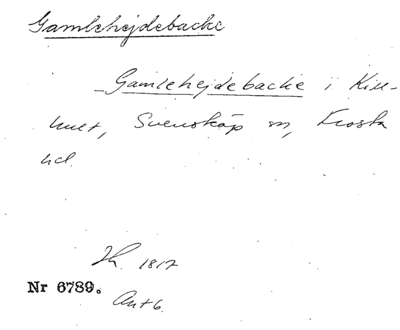 Gamlehejdebacke
Gamlehejdebacke i Kill-
hult, Svensköp sn, Frosta
hd.
Th. 1817
Nr 6789.
Ant 6.